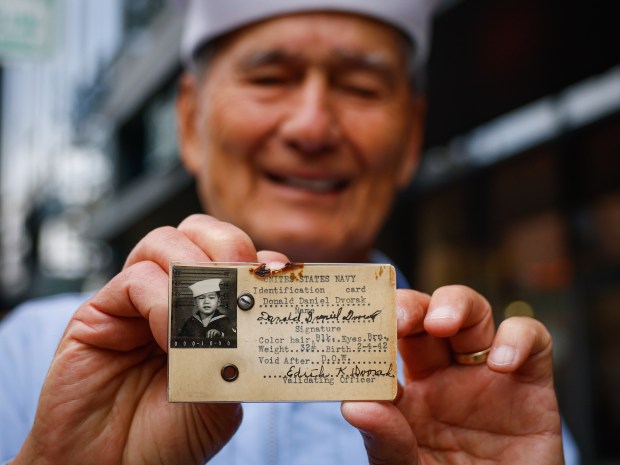 UNITED STATES NAVY
Identification card
Donald Daniel Dvorak
Name
Donald Daniel Dvorak
Signature
Color hair Blk. Eyes Brn.
Weight 32# Birth 2-4-42
Void After D.O.W.
Edith K Dvorak
Validating Officer